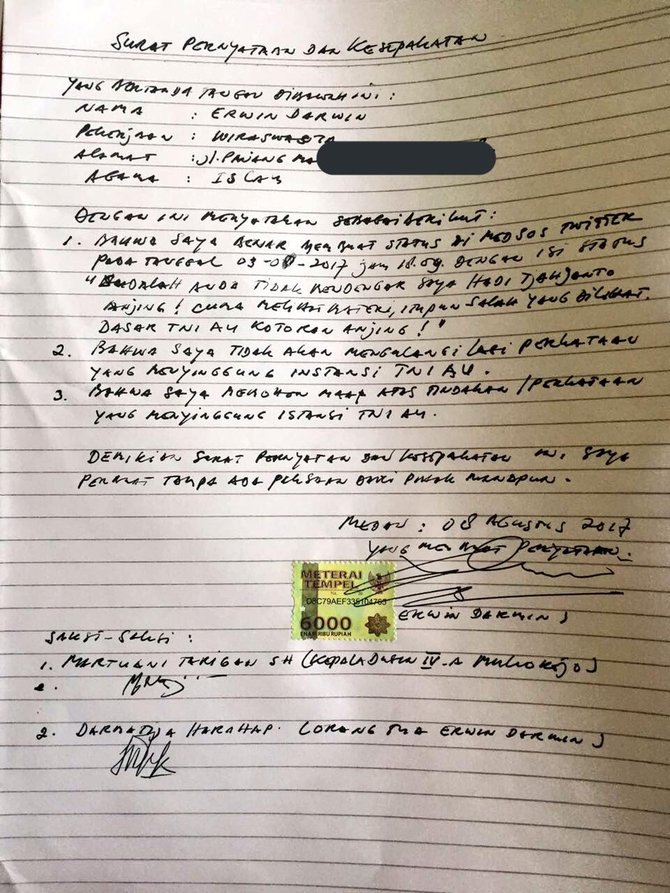 SURAT PERNYATAAN DAN KESEPAKATAN
YANG BERTANDA TANGAN DIBAWAH INI :
NAMA : ERWIN DARWIN
PEKERJAAN : WIRASWASTA
ALAMAT : Jl. PINANG
AGAMA : ISLAM
DENGAN INI MENYATAKAN SEBAGAI BERIKUT :
1. BAHWA SAYA BENAR MEMBUAT STATUS DI MEDSOS TWITTER
PADA TANGGAL 03-08-2017 JAM 18.59. DENGAN ISI STATUS
ANDA TIDAK MENDENGAR SAYA HADI TJAHJANTO
ANJING! CUMA MELIHAT MATERI, SALAH YANG DILIHAT.
DASAR TNI AU KOTORAN ANJING! "
2. BAHWA SAYA TIDAK AKAN MENGULANGI LAGI PERKATAAN
YANG MENYINGGUNG INSTANSI TNI AU.
3. BAHWA SAYA MEMOHON MAAF ATAS TINDAKAN / PERKATAAN
YANG MENYINGGUNG ISTANSI TNI AU.
DEMIKIAN SURAT PERNYATAN DAN KESEPAKATAN INI, SAYA
PERBUAT TAMPA ADA PAKSAAN DARI PIHAK MANAPUN.
MEDAN : 08 AGUSTUS 2017
YANG MEMBUAT PERNYATAAN.
METERAI
TEMPEL
6000
ENAM RIBU RUPIAH
ERWIN DARWIN )
SAKSI-SAKSI :
1. MARTUANI TARIGAN SH (KEPALA DUSUN IV-A MULIOREJO)
2. HARAHAP. (ORANG TUA ERWIN DARWIN)